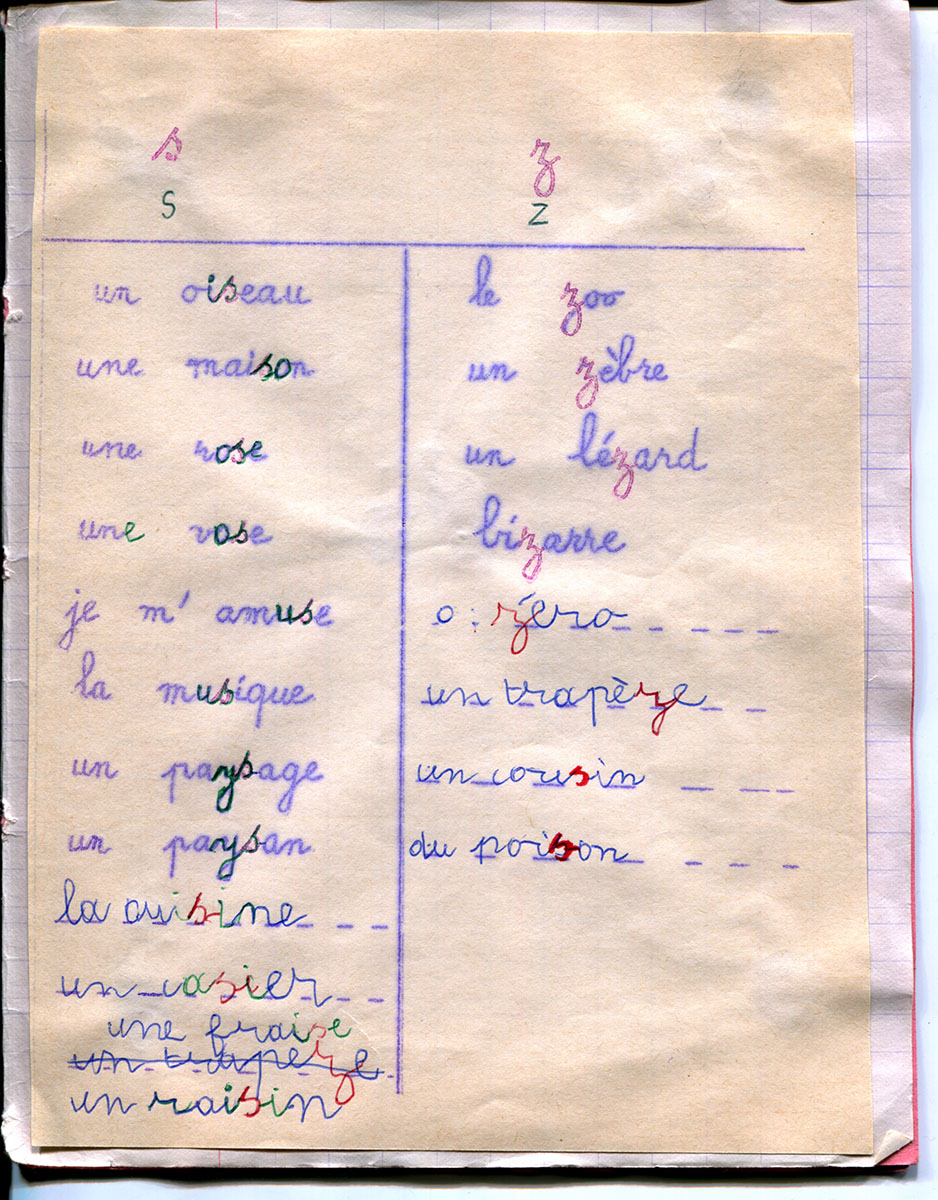 s
s
un oiseau
une maison
une rose
une vase
je m' amuse
la musique
un paysage
un paysan
la cuisine
un casier
une fraise
un trapèze
un raisin
z
z
le zoo
un zèbre
un lézard
bizarre
0 : zéro
un trapèze
un cousin
du poison